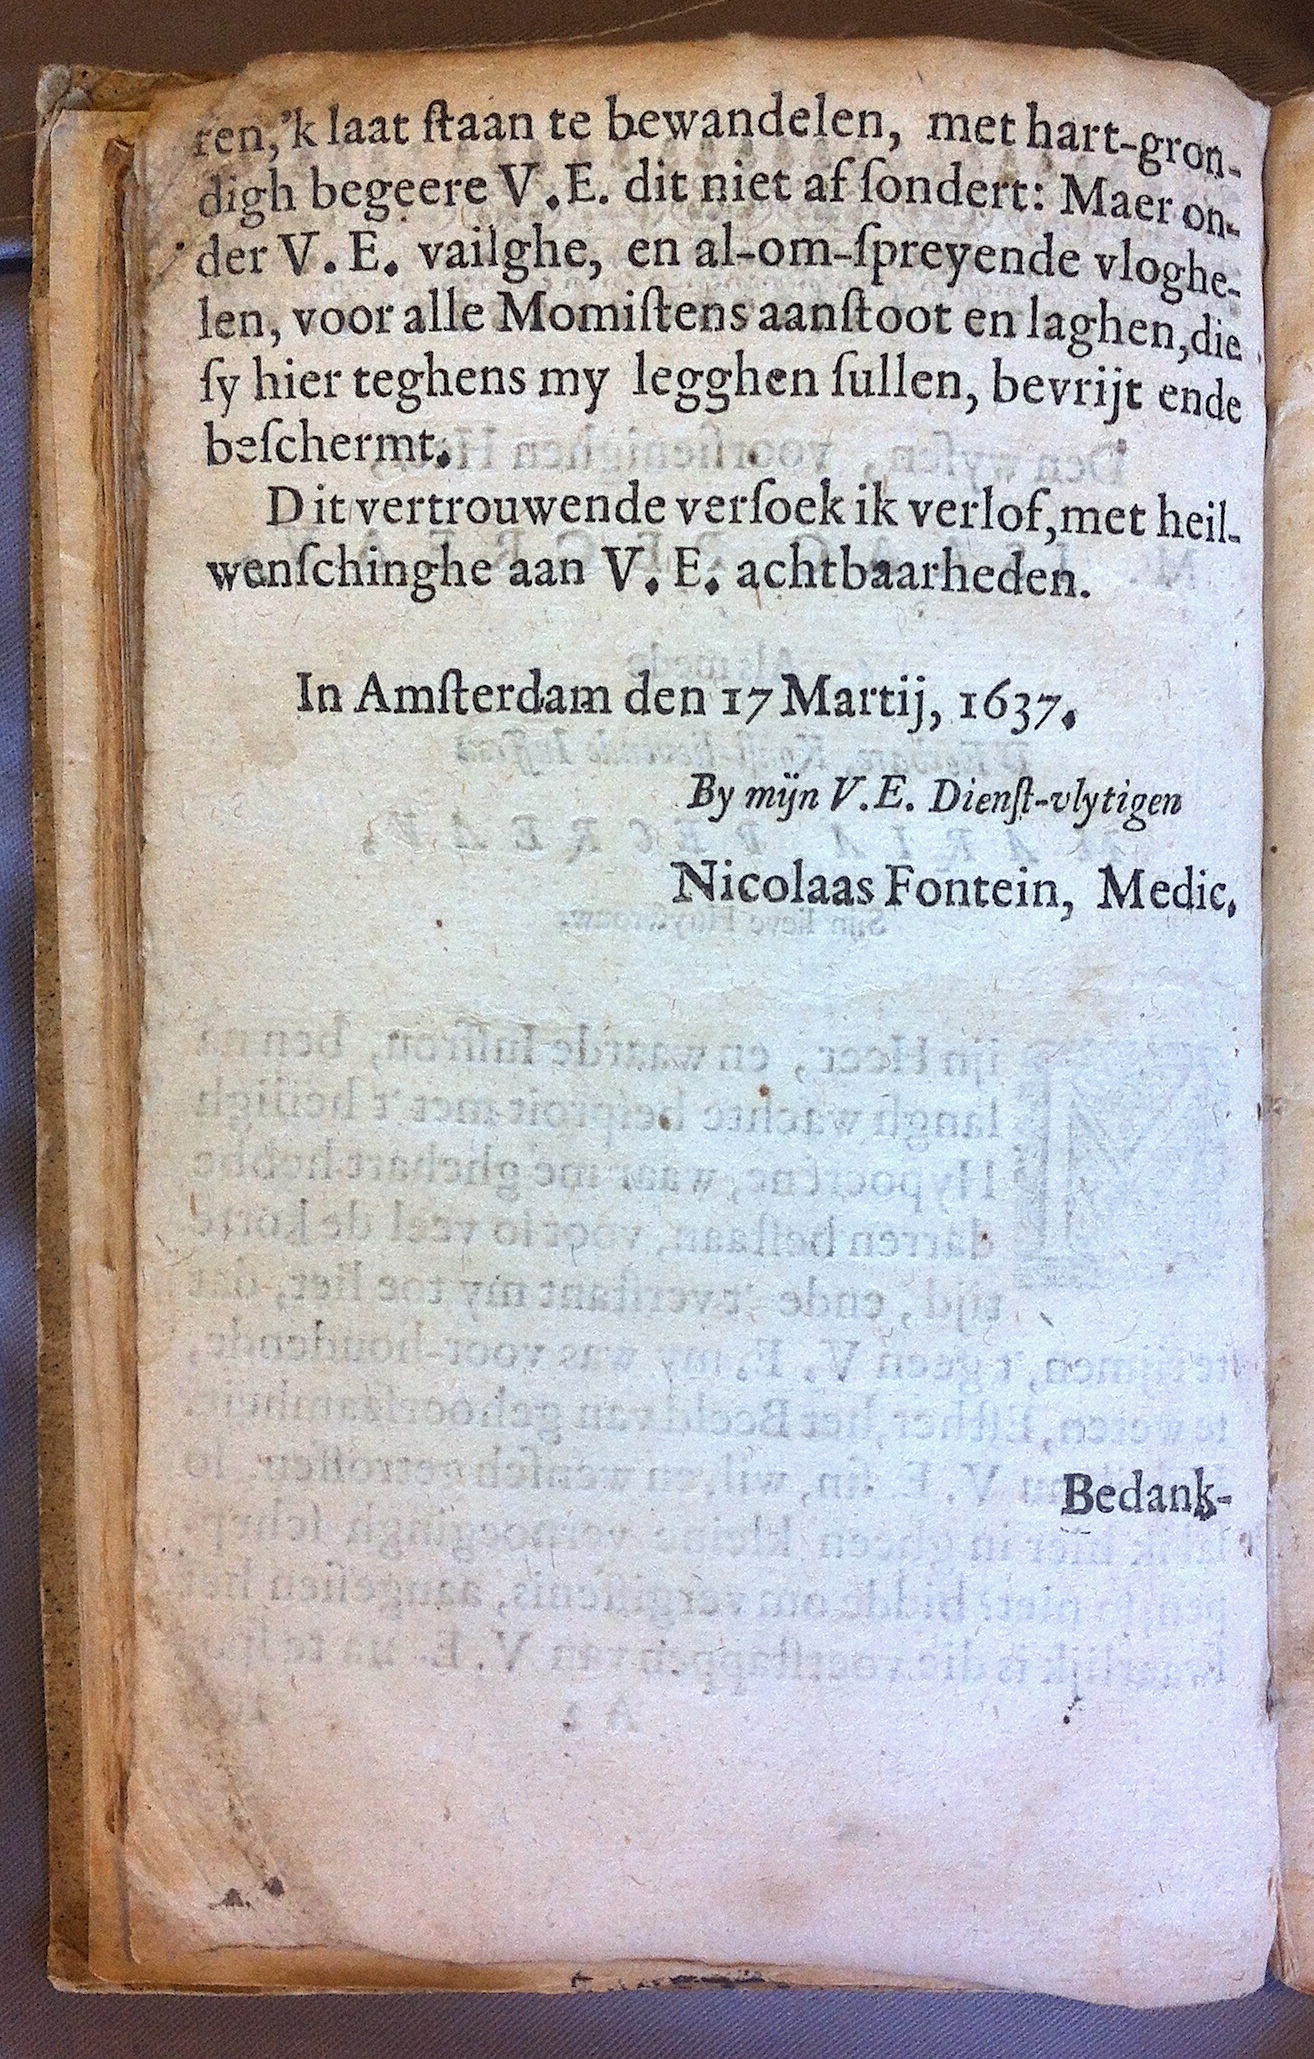 ren,'k laat ſtaan te bewandelen, met hart-gron-
digh begeere V.E. dit niet af ſondert: Maer on-
der V.E. vailghe, en al-om-ſpreyende vloghe-
len, voor alle Momiſtens aanſtoot en laghen, die
ſy hier teghens my legghen ſullen, bevrijt ende
beſchermt.
Dit vertrouwende verſoek ik verlof, met heil-
wenſchinghe aan V.E. achtbaarheden.
In Amſterdam den 17 Martij, 1637.
By mijn V.E. Dienſt-vlytigen
Nicolaas Fontein, Medic.
Bedank-